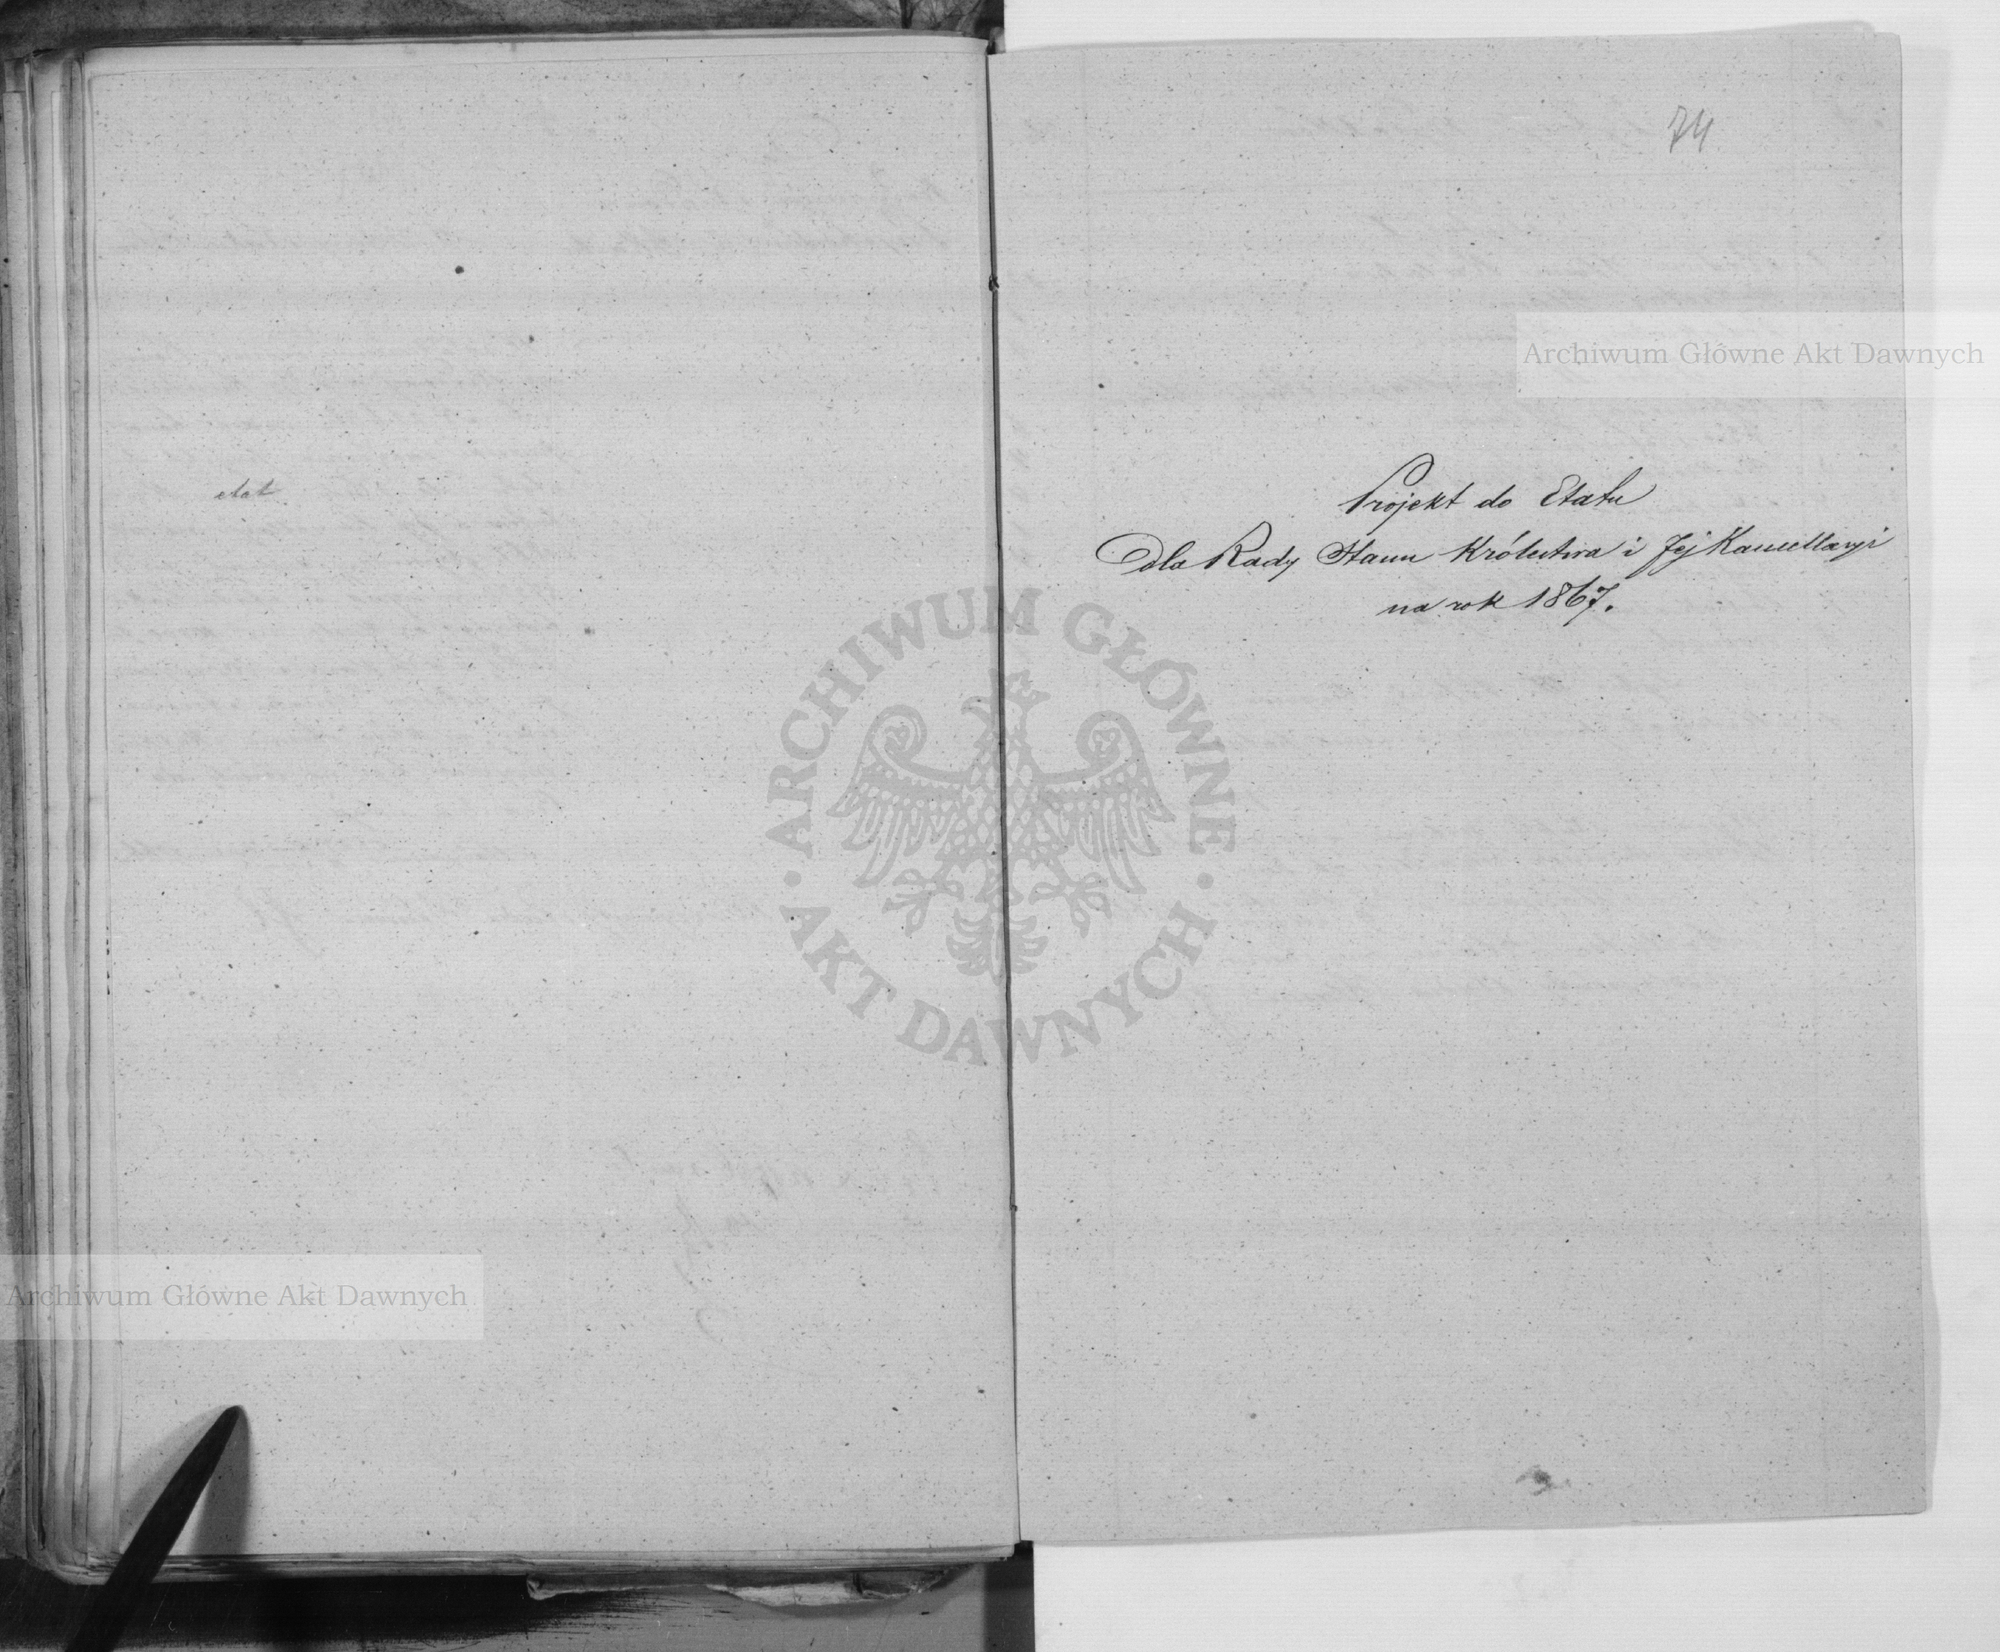 etat
74
Projekt do Etatu
dla Rady Stanu Królestwa i Jej Kancellaryi
na rok 1867.
Archiwum Główne Akt Dawnych
ARCHIWUM GŁÓWNE
· AKT DAWNYCH ·
Archiwum Główne Akt Dawnych